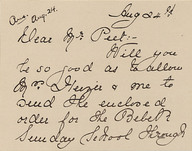 Ans. Aug 24.
Aug 24th
Dear Mr Peet:-
Will you
be so good as to allow
Mrs & me to
send the enclosed
order for the Bebek
Sunday School through